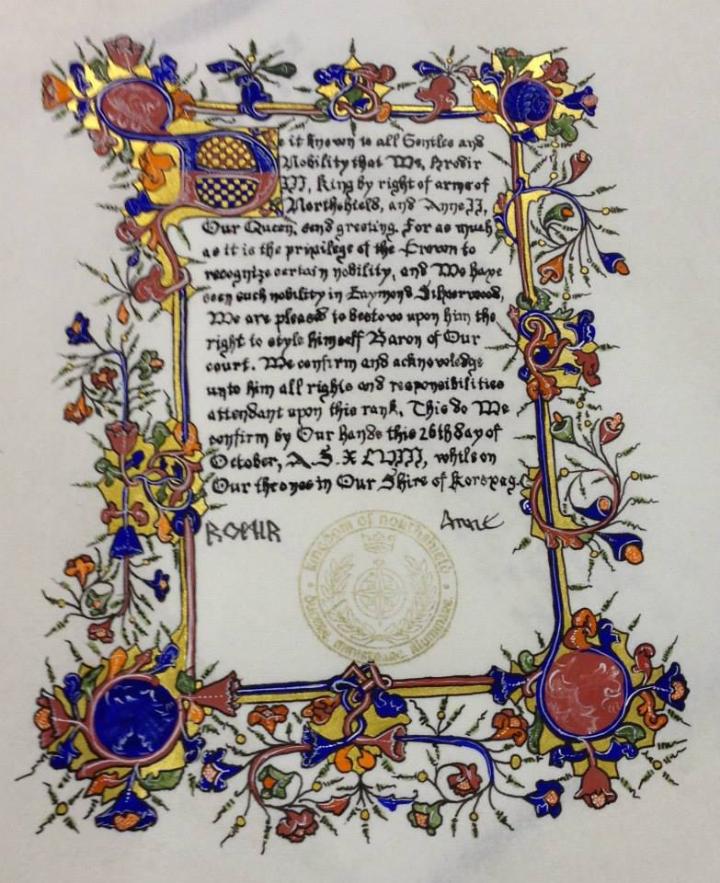 Be it known to all Gentles and
Nobility that We, Hrodir
III, King by right of arms of
Northshield, and Anne II,
Our Queen, send greeting. For as much
as it is the privilege of the Crown to
recognize certain nobility, and We have
seen such nobility in Eaymond Silverwood,
We are pleased to bestow upon him the
right to style himself Baron of Our
court. We confirm and acknowledge
unto him all rights and responsibilities
attendant upon this rank. This do We
confirm by Our hands this 26th day of
October, A.S. XLVIII, whilst on
Our thrones in Our Shire of
Anne
Kingdom of Northshield